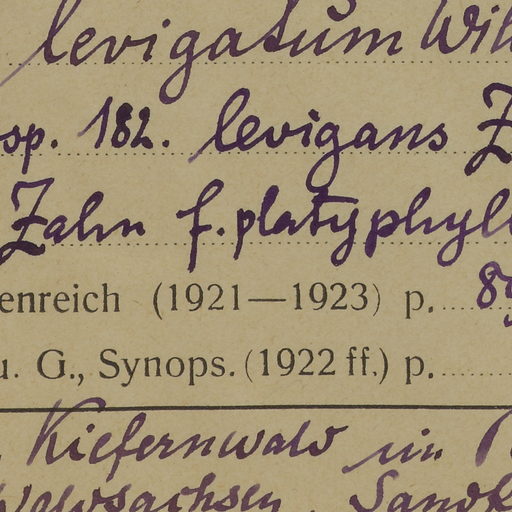 levigatum Wil
ssp. 182. levigans Z
Zahn f. platyphyll
enreich (1921—1923) p. 89
u. G., Synops. (1922 ff.) p.
Kiefernwald im
Waldsachsen, Sandk